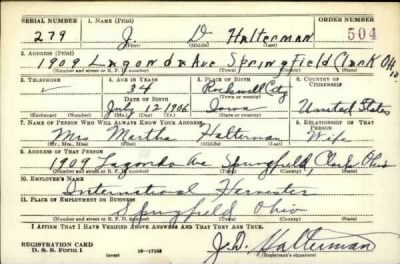 SERIAL NUMBER 1. NAME (Print) ORDER NUMBER
279 J. D Halterman 504
(First) (Middle) (Last)
2. ADDRESS (Print)
1909 Lagonda Ave Springfield Clark Ohio
(Number and street or R. F. D. number) (Town) (County) (State)
3. TELEPHONE 4. AGE IN YEARS 5. PLACE OF BIRTH 6. COUNTRY OF CITIZENSHIP
✓ 34 Rockwell City
DATE OF BIRTH (Town or county)
July 12 1906 Iowa United States
(Exchange) (Number) (Mo.) (Day) (Yr.) (State or country)
7. NAME OF PERSON WHO WILL ALWAYS KNOW YOUR ADDRESS 8. RELATIONSHIP OF THAT PERSON
Mrs Martha Halterman Wife
(Mr., Mrs., Miss) (First) (Middle) (Last)
9. ADDRESS OF THAT PERSON
1909 Lagonda Ave Springfield, Clark Ohio
(Number and street or R. F. D. number) (Town) (County) (State)
10. EMPLOYER'S NAME
International Harvester
11. PLACE OF EMPLOYMENT OR BUSINESS
Springfield Ohio
(Number and street or R. F. D. number) (Town) (County) (State)
I AFFIRM THAT I HAVE VERIFIED ABOVE ANSWERS AND THAT THEY ARE TRUE.
REGISTRATION CARD
D. S. S. Form 1 (over) J. D. Halterman